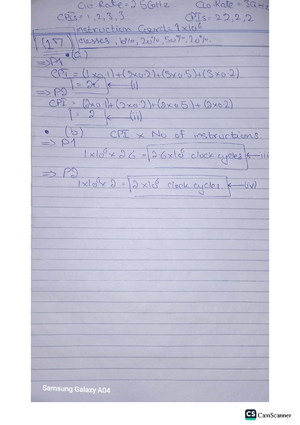 Clo Rate = 2.5GHz Clo Rate = 3GHz
CPIs = 1,2,3,3 CPIs = 2,2,2,2
instruction Count = 1x10⁶
(1.5.7) classes, 10%, 20%, 50%, 20%.
• (a)
=> P1
CPI = (1x0.1)+(2x0.2)+(3x0.5)+(3x0.2)
= 2.6 ← (i)
=> P2
CPI = (2x0.1)+(2x0.2)+(2x0.5)+(2x0.2)
= 2 ← (ii)
• (b) CPI x No of instructions
=> P1
1x10⁶ x 2.6 = 2.6x10⁶ clock cycles ← iii
=> P2
1x10⁶ x 2 = 2x10⁶ clock cycles ← iv)
Samsung Galaxy A04
CS CamScanner